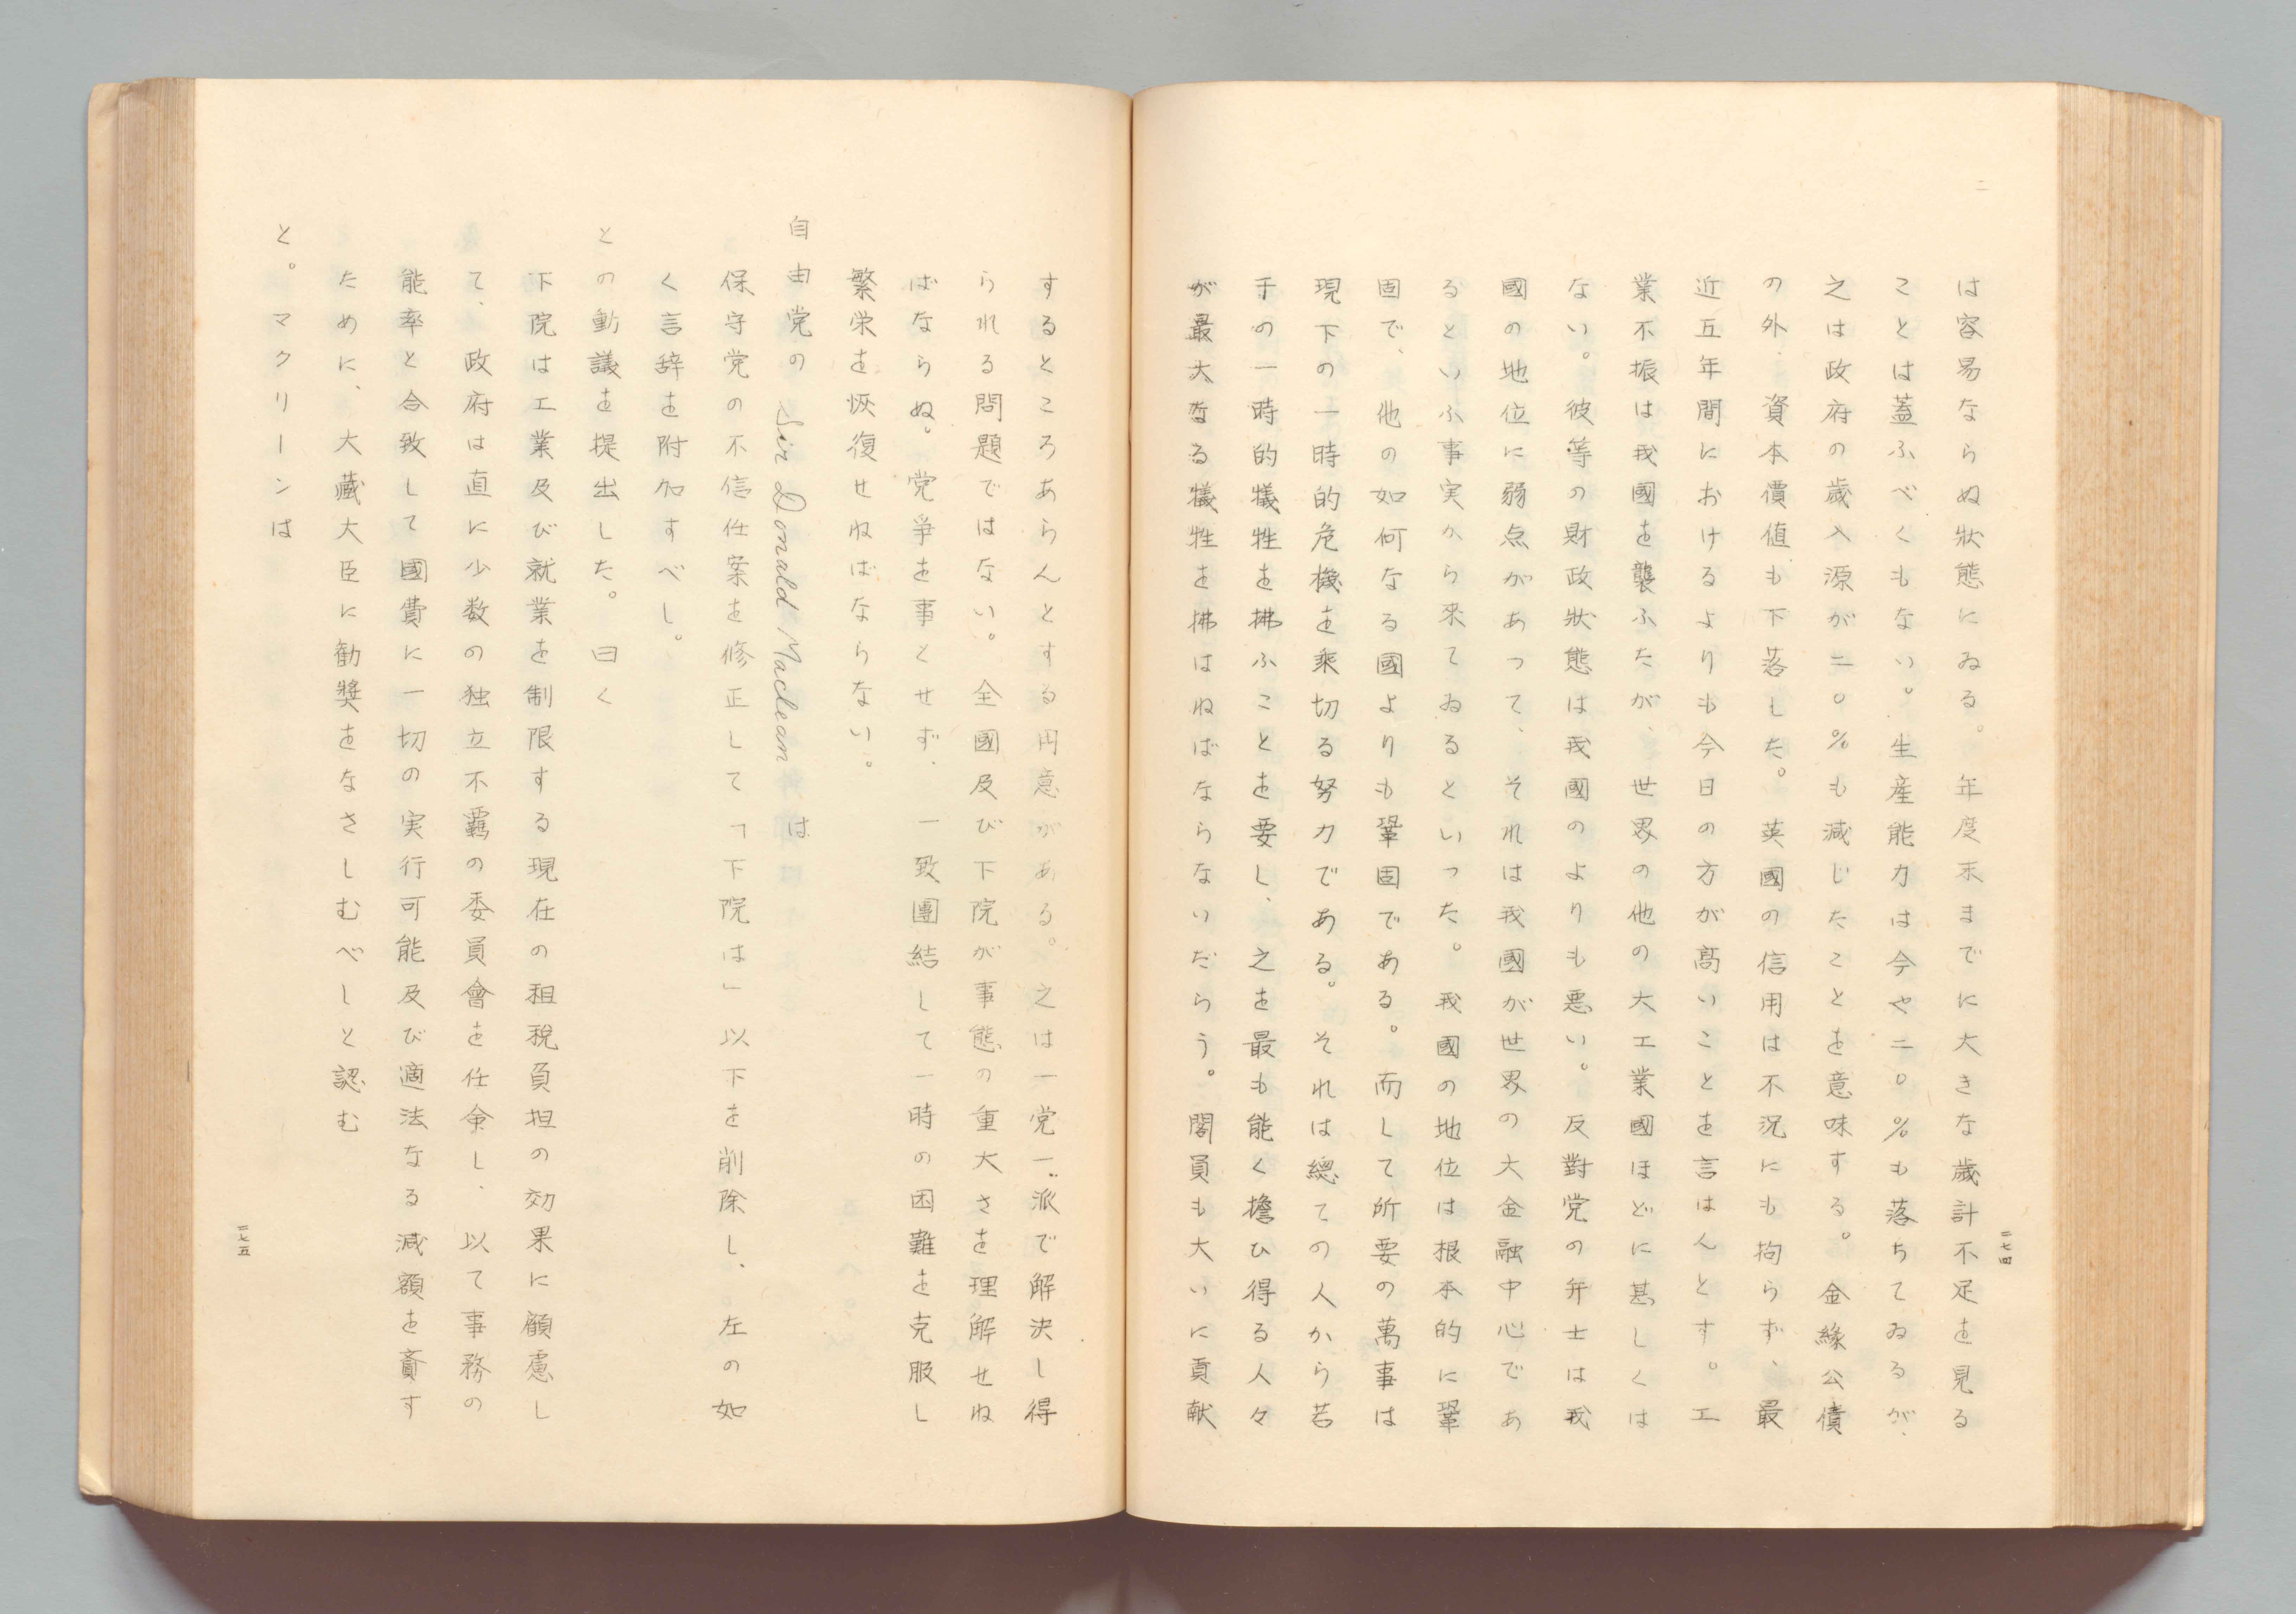 は容易ならぬ狀態にゐる。年度末までに大きな歲計不足を見る
ことは蓋ふべくもない。生産能力は今や二〇％も落ちてゐるが、
之は政府の歲入源が二〇％も減じたことを意味する。金緣公債
の外、資本價値も下落した。英國の信用は不況にも拘らず、最
近五年間におけるよりも今日の方が高いことを言はんとす。工
業不振は我國を襲ふたが、世界の他の大工業國ほどに甚しくは
ない。彼等の財政狀態は我國のよりも悪い。反對党の弁士は我
國の地位に弱点があって、それは我國が世界の大金融中心であ
るといふ事実から來てゐるといった。我國の地位は根本的に鞏
固で、他の如何なる國よりも鞏固である。而して所要の萬事は
現下の一時的危機を乘切る努力である。それは總ての人から若
干の一時的犠牲を拂ふことを要し、之を最も能く擔ひ得る人々
が最大なる犠牲を拂はねばならないだらう。閣員も大いに貢献
二七四
するところあらんとする用意がある。之は一党一派で解決し得
られる問題ではない。全國及び下院が事態の重大さを理解せね
ばならぬ。党爭を事とせず、一致團結して一時の困難を克服し
繁栄を恢復せねばならない。
自由党の Sir Donald Maclean は
保守党の不信任案を修正して「下院は」以下を削除し、左の如
く言辞を附加すべし。
との動議を提出した。曰く
下院は工業及び就業を制限する現在の租税負担の効果に顧慮し
て、政府は直に少数の独立不羈の委員會を任命し、以て事務の
能率と合致して國費に一切の実行可能及び適法なる減額を齎す
ために、大藏大臣に勧奨をなさしむべしと認む
と。マクリーンは
二七五